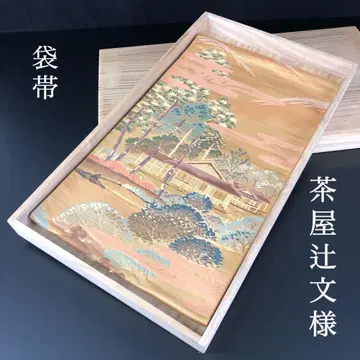 袋帯
茶屋辻文様